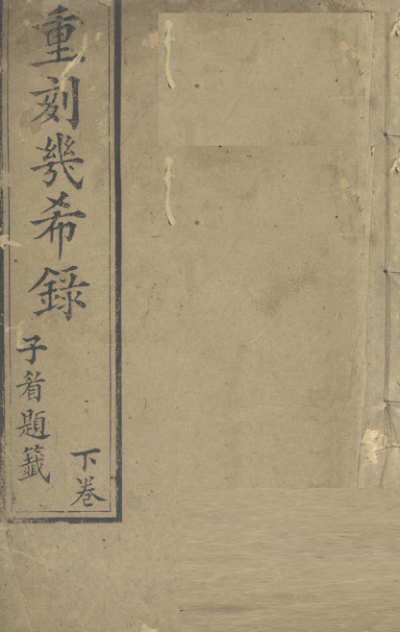 重刻幾希錄
子眉題籤
下卷